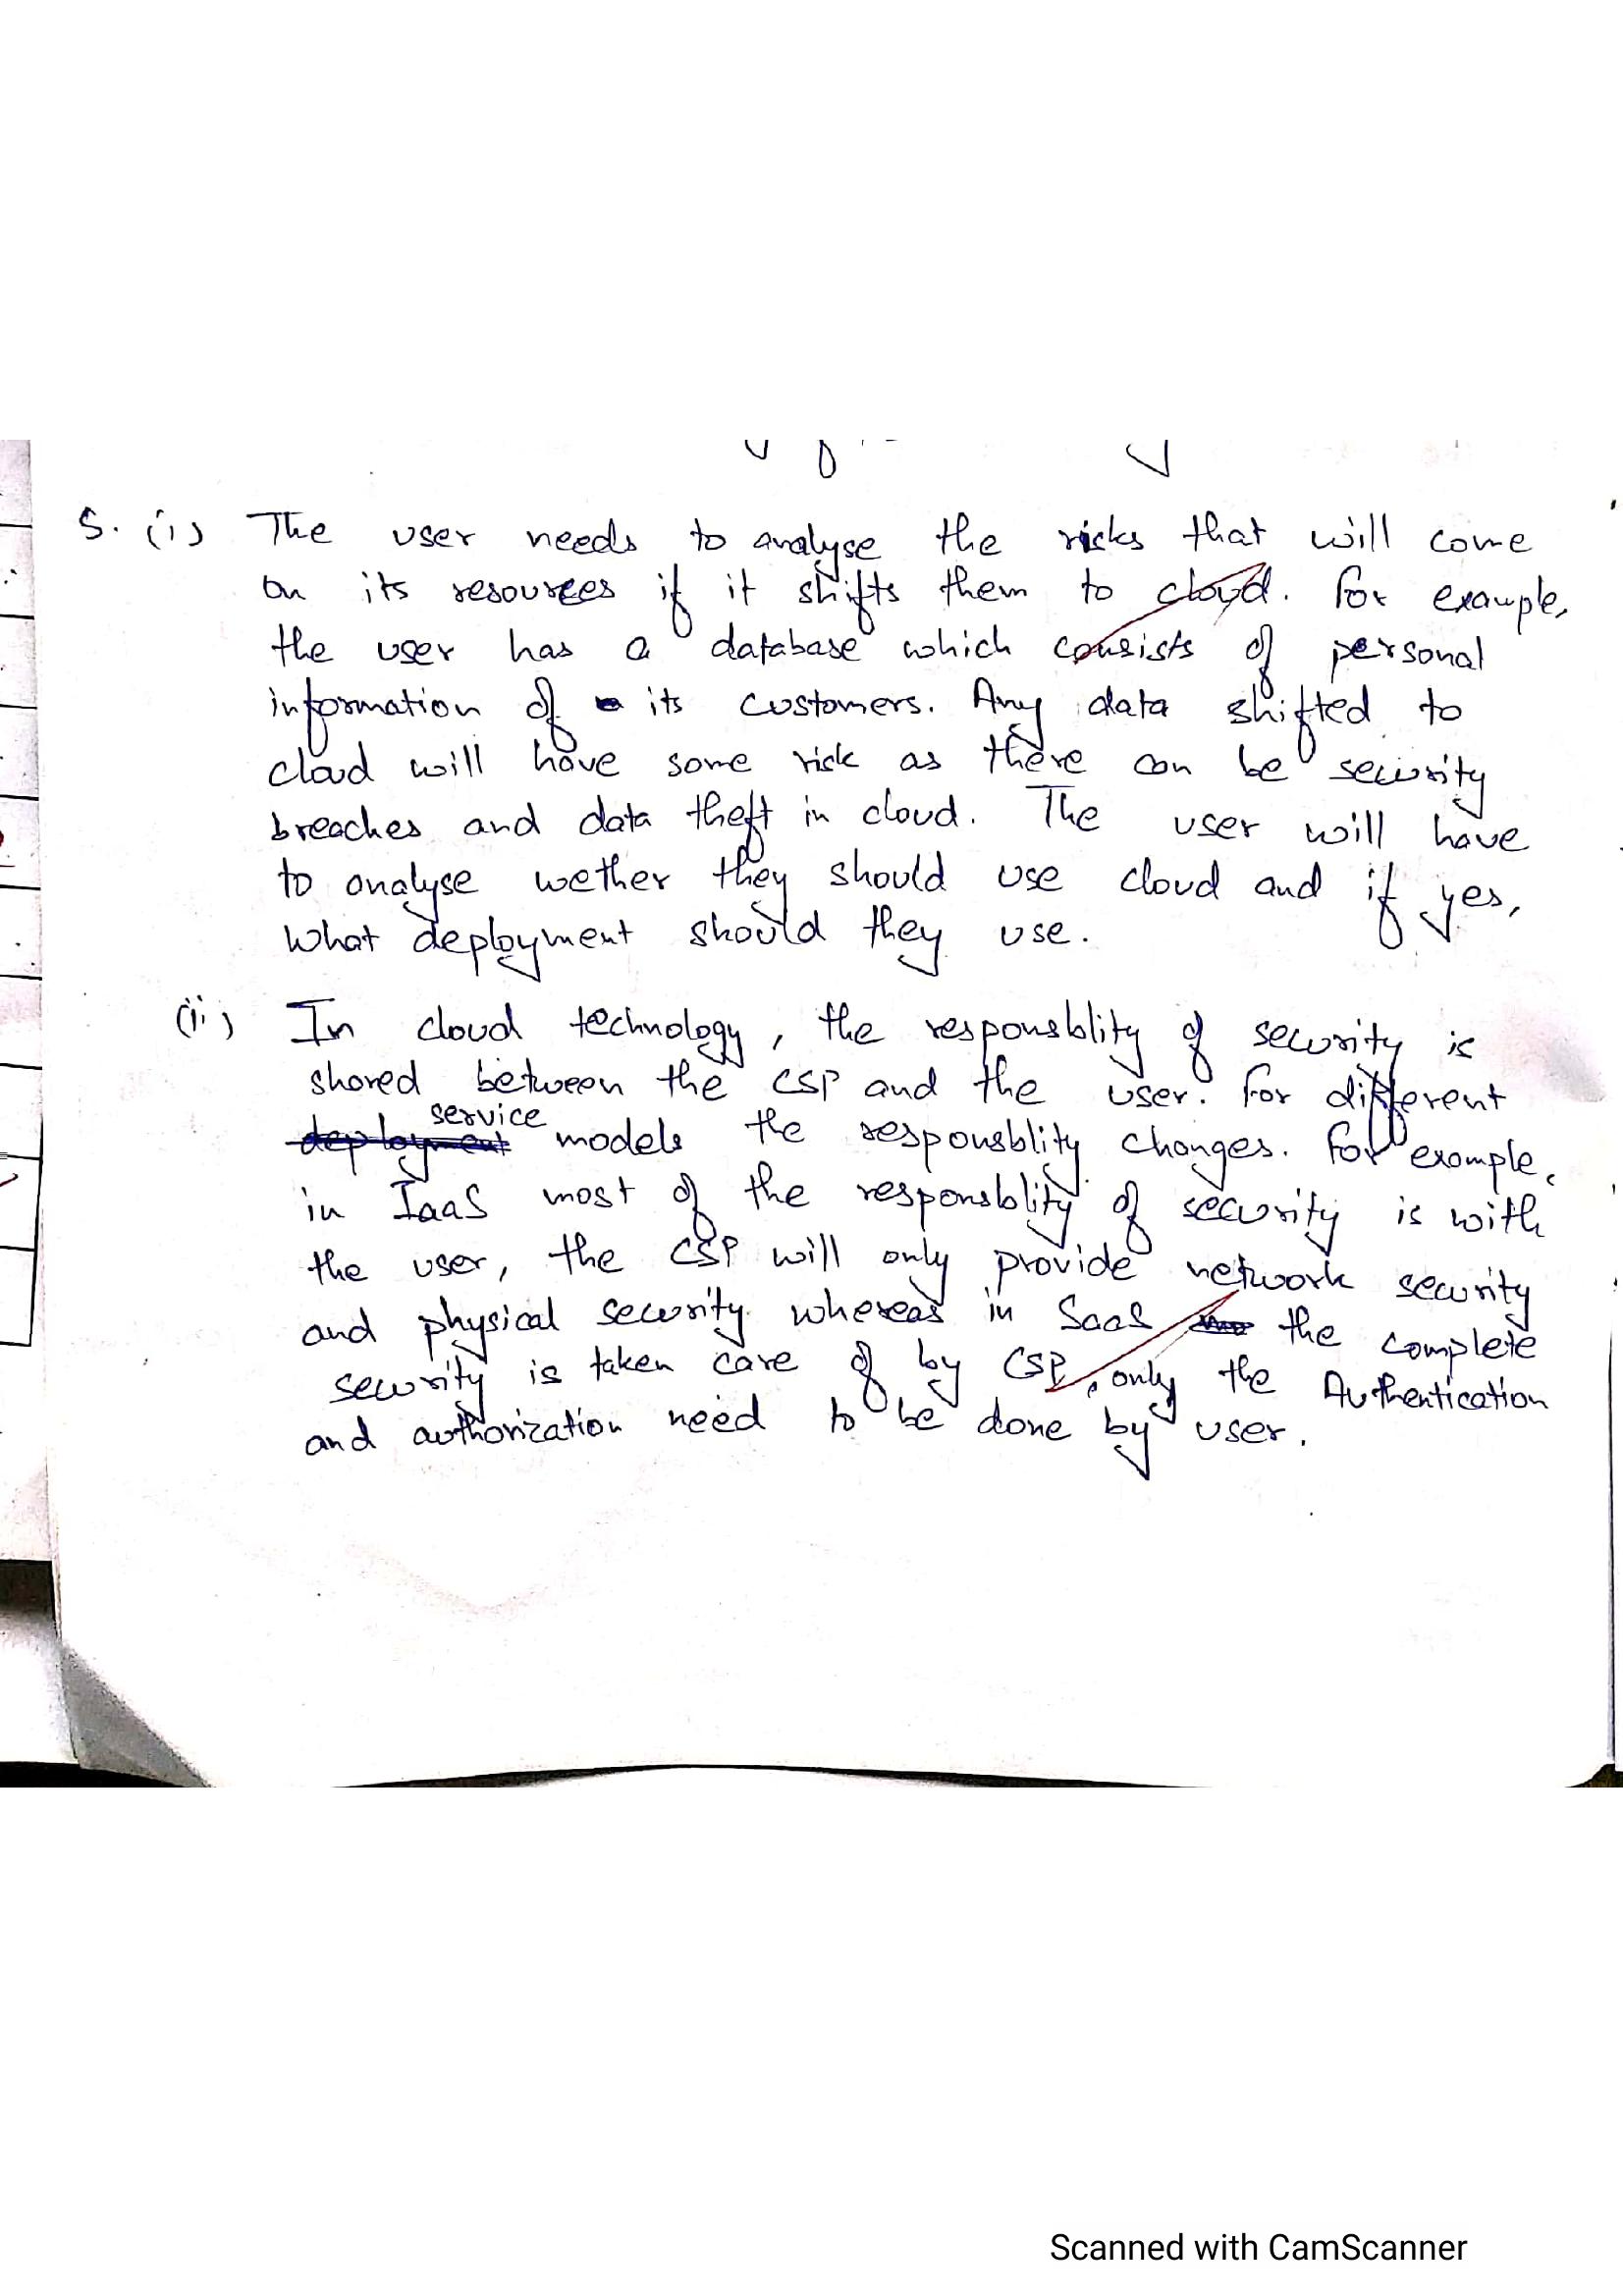 5. (i) The user needs to analyse the risks that will come
on its resources if it shifts them to cloud. For example,
the user has a database which consists of personal
information of its customers. Any data shifted to
cloud will have some risk as there can be security
breaches and data theft in cloud. The user will have
to analyse wether they should use cloud and if yes,
what deployment should they use.
(ii) In cloud technology, the responsblity of security is
shared between the CSP and the user. For different
service
deployment models the responsblity changes. For example,
in IaaS most of the responsblity of security is with
the user, the CSP will only provide network security
and physical security whereas in SaaS the complete
security is taken care of by CSP, only the Authentication
and authorization need to be done by user.
Scanned with CamScanner